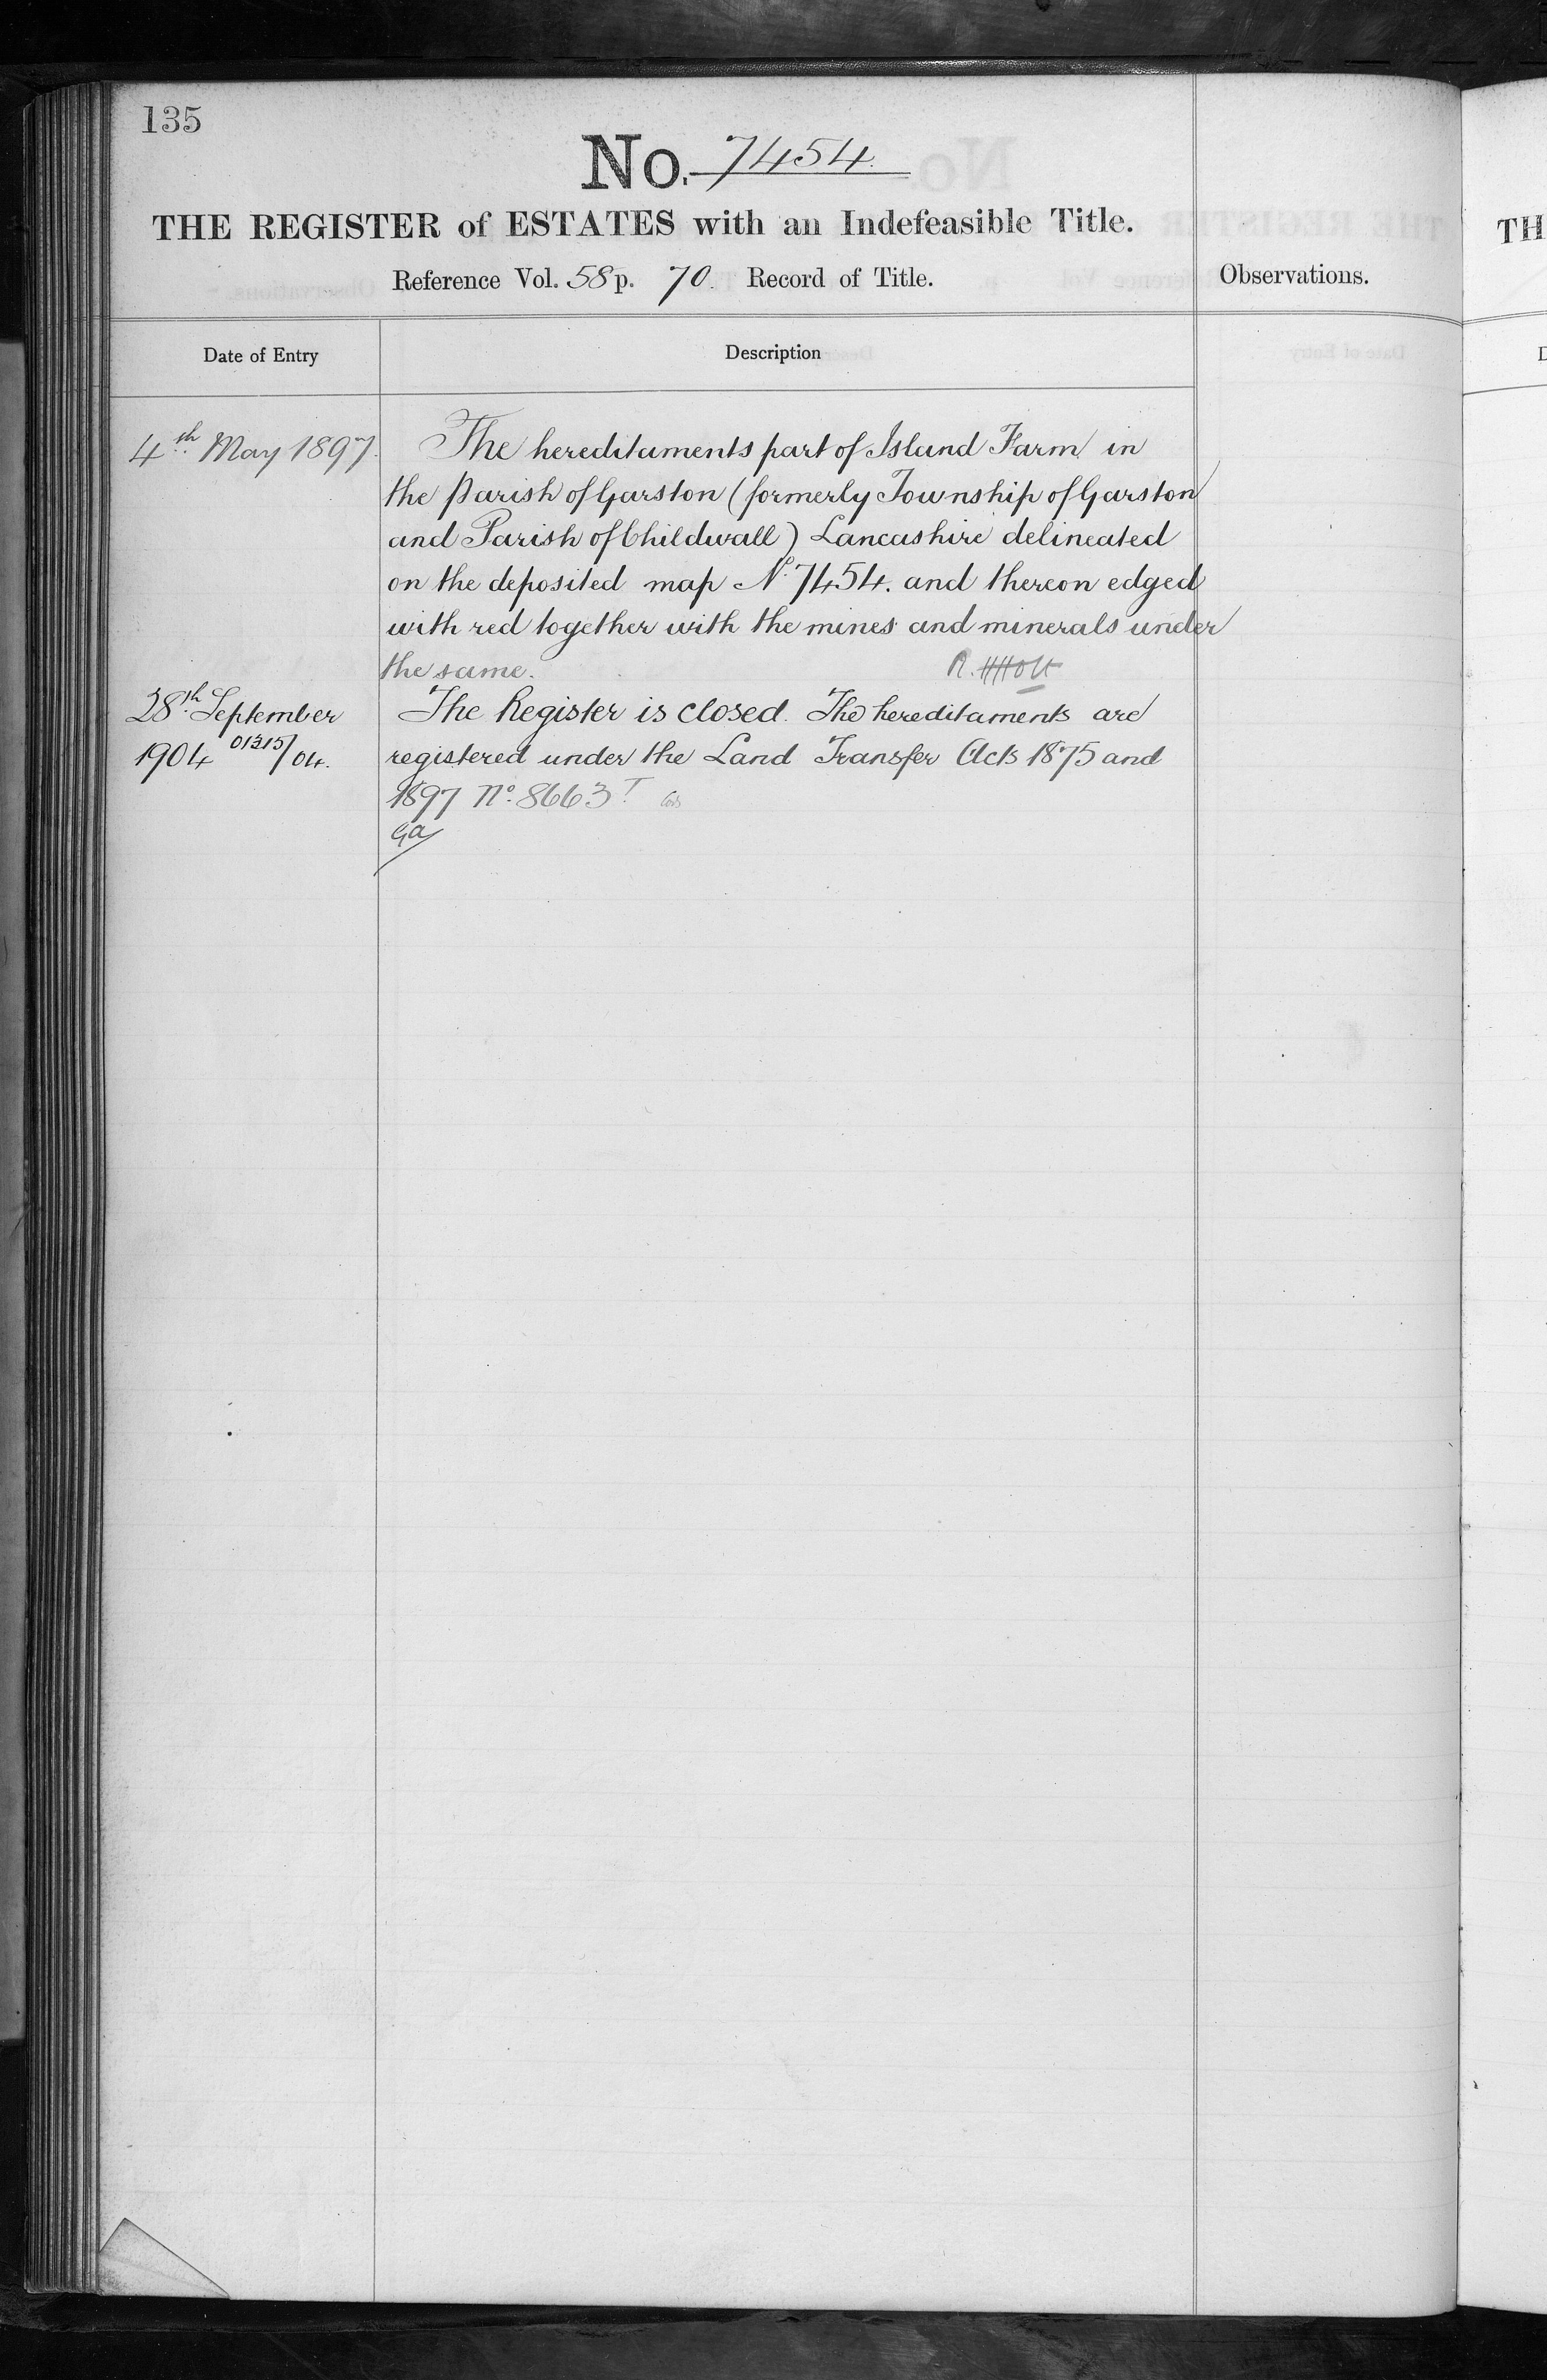 135
No. 7454.
THE REGISTER of ESTATES with an Indefeasible Title.
Reference Vol. 58 p. 70. Record of Title.
Observations.
Date of Entry
Description
4th. May 1897.
The hereditaments part of Island Farm in
the Parish of Garston (formerly Township of Garston
and Parish of Childwall) Lancashire delineated
on the deposited map No. 7454. and thereon edged
with red together with the mines and minerals under
the same.
R. H Holt
28th. September
1904 01315/04.
The Register is closed. The hereditaments are
registered under the Land Transfer Acts 1875 and
1897 No. 8663T.
Ga
TH